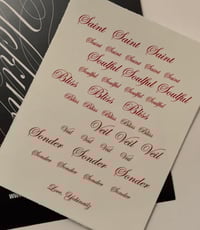 Saint Saint Saint
Saint Saint Saint Saint
Soulful Soulful Soulful
Soulful Soulful Soulful Soulful
Bliss Bliss Bliss
Bliss Bliss Bliss Bliss
Veil Veil Veil
Veil Veil Veil Veil
Sonder Sonder Sonder
Sonder Sonder Sonder Sonder